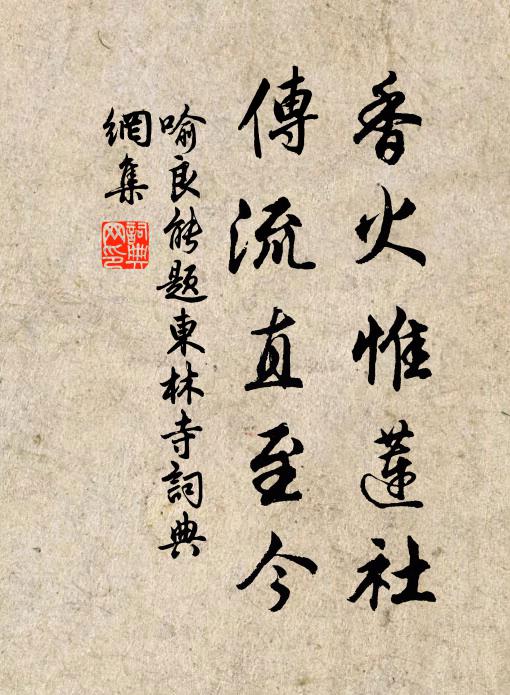 香火惟蓮社
傳流直至今
喻良能題東林寺詞典
網集
詞典
网印